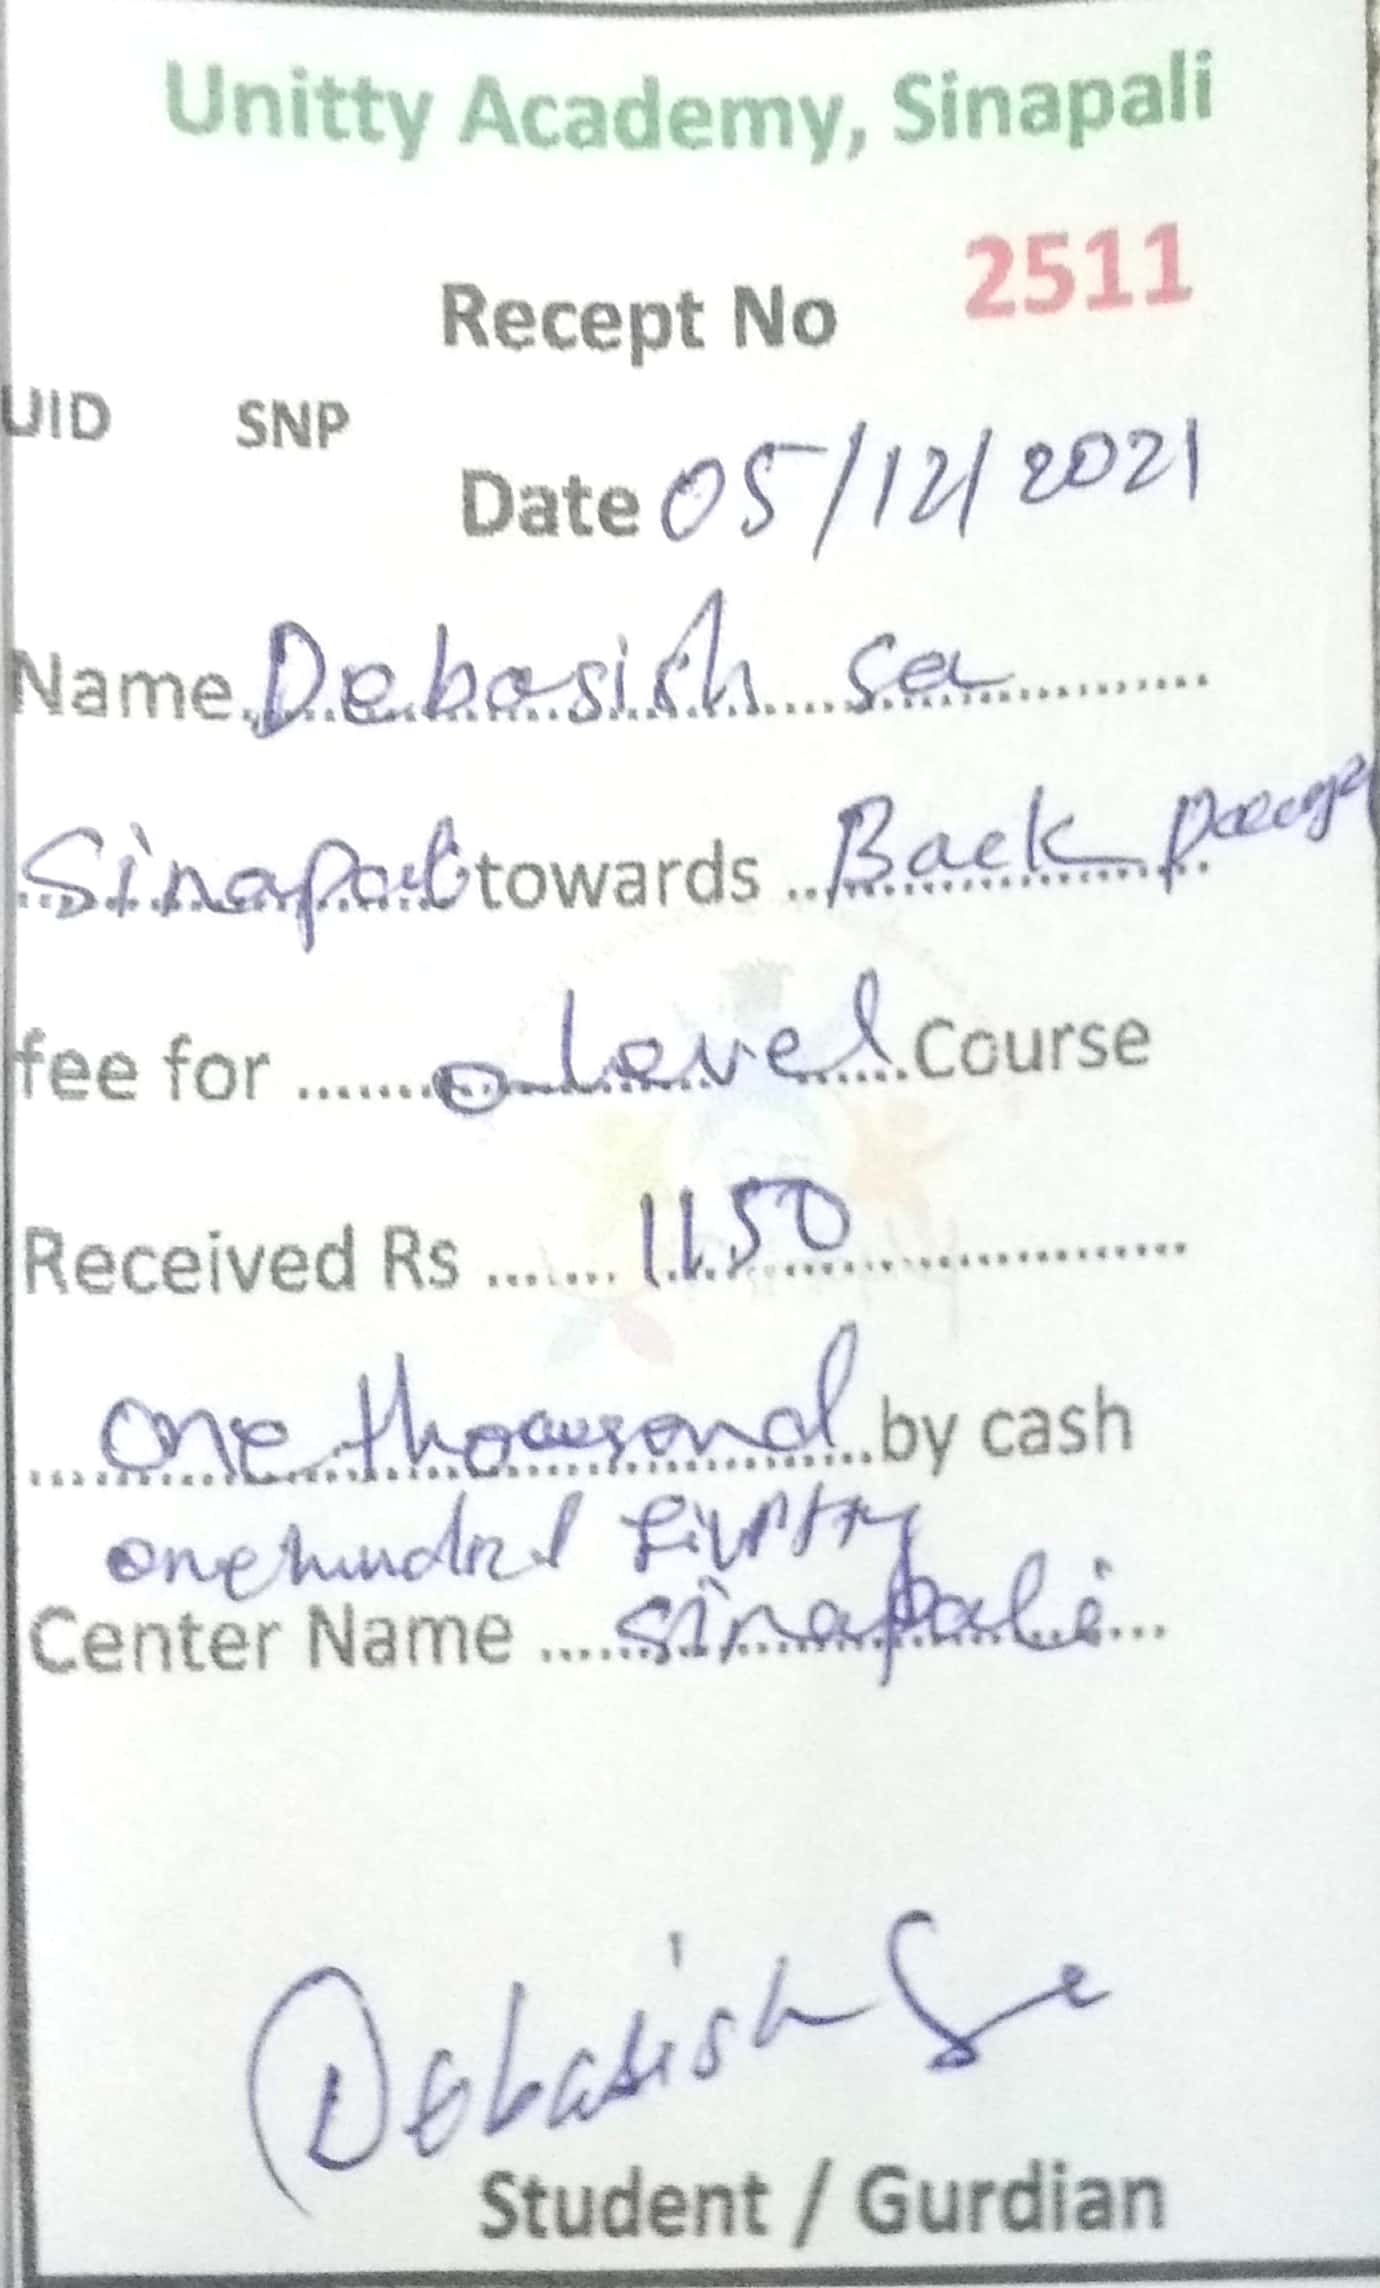 Unitty Academy, Sinapali
Recept No 2511
UID SNP
Date 05/12/2021
Name Debasish Sa
Sinapali towards Back
fee for o Level Course
Received Rs 1150
one thousand by cash
one hundred
Center Name sinapali
Debasish Sa
Student / Gurdian